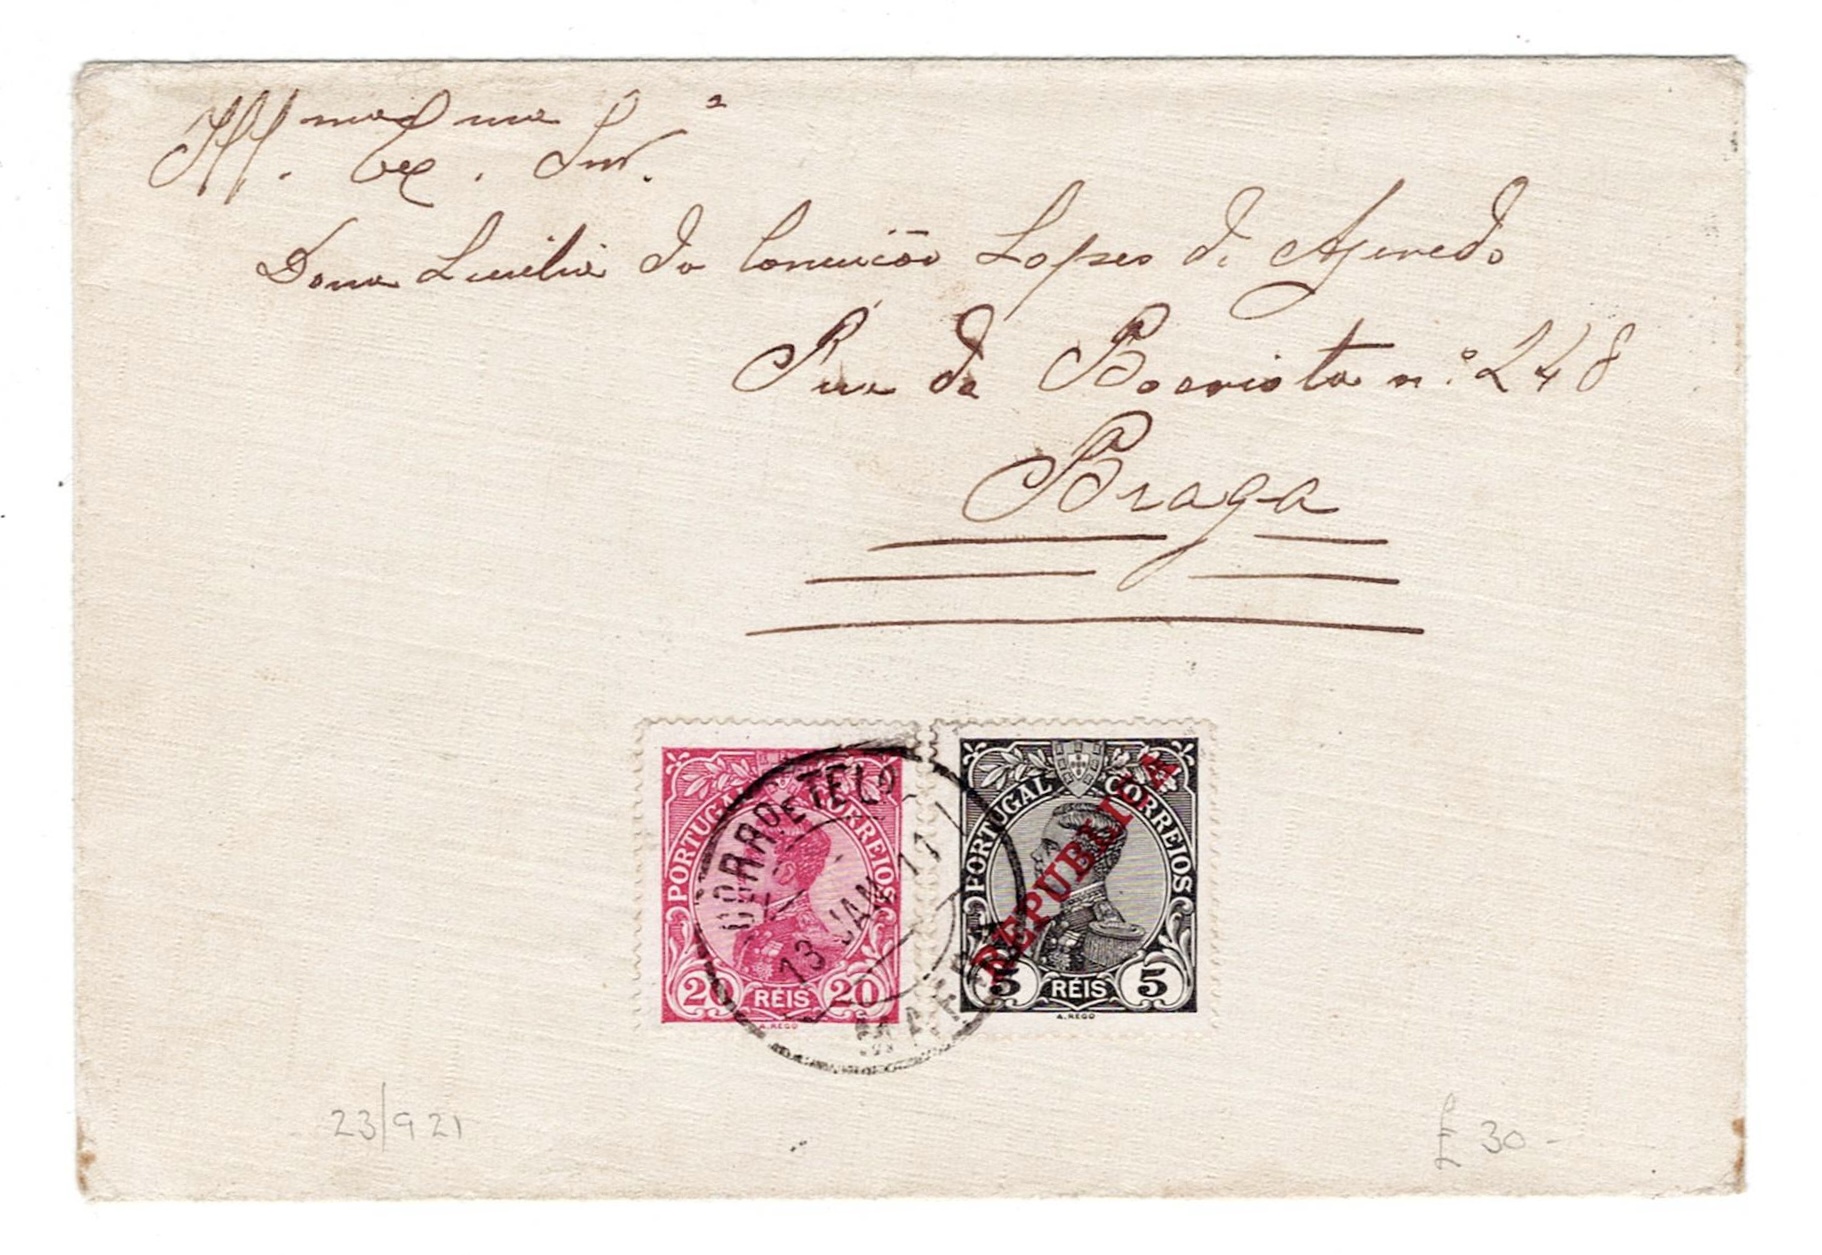 Ill.ma Ex.ma Snr.a
Dona Lucilia da Conceição Lopes de Azevedo
Rua da Boavista n.º 248
Braga
PORTUGAL CORREIOS
20 RÉIS 20
A. REGO
PORTUGAL CORREIOS
REPUBLICA
5 RÉIS 5
A. REGO
CORRO E TELO
13 JAN 11
23/921
£30-